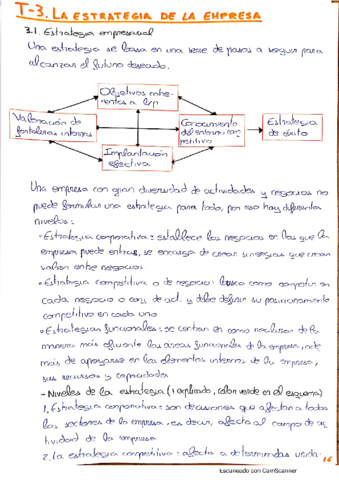 T-3. LA ESTRATEGIA DE LA EMPRESA
3.1. Estrategia empresarial
Una estrategia se basa en una serie de pasos a seguir para
alcanzar el futuro deseado.
Objetivos cohe-
rentes a l/p
Valoración de
fortalezas internas
Conocimiento
del entorno com
petitivo
Estrategia
de éxito
Implantación
efectiva
Una empresa con gran diversidad de actividades y negocios no
puede formular una estrategia para todo, por eso hay diferentes
niveles:
• Estrategia corporativa: establece los negocios en los que la
empresa puede entrar, se encarga de crear sinergias que crean
valor entre negocios
• Estrategia competitiva o de negocio: busca como competir en
cada negocio o conj. de act. y debe definir su posicionamiento
competitivo en cada uno
• Estrategias funcionales: se centran en como realizar de la
manera más eficiente las áreas funcionales de la empresa, ade
más de apoyarse en los elementos internos de la empresa,
sus recursos y capacidades
- Niveles de la estrategia (+ explicado, color verde en el esquema)
1. Estrategia corporativa: son decisiones que afectan a todos
los sectores de la empresa, es decir, afecta al campo de ac
tividad de la empresa
2. La estrategia competitiva: afecta a determinadas unida-
16
Escaneado con CamScanner